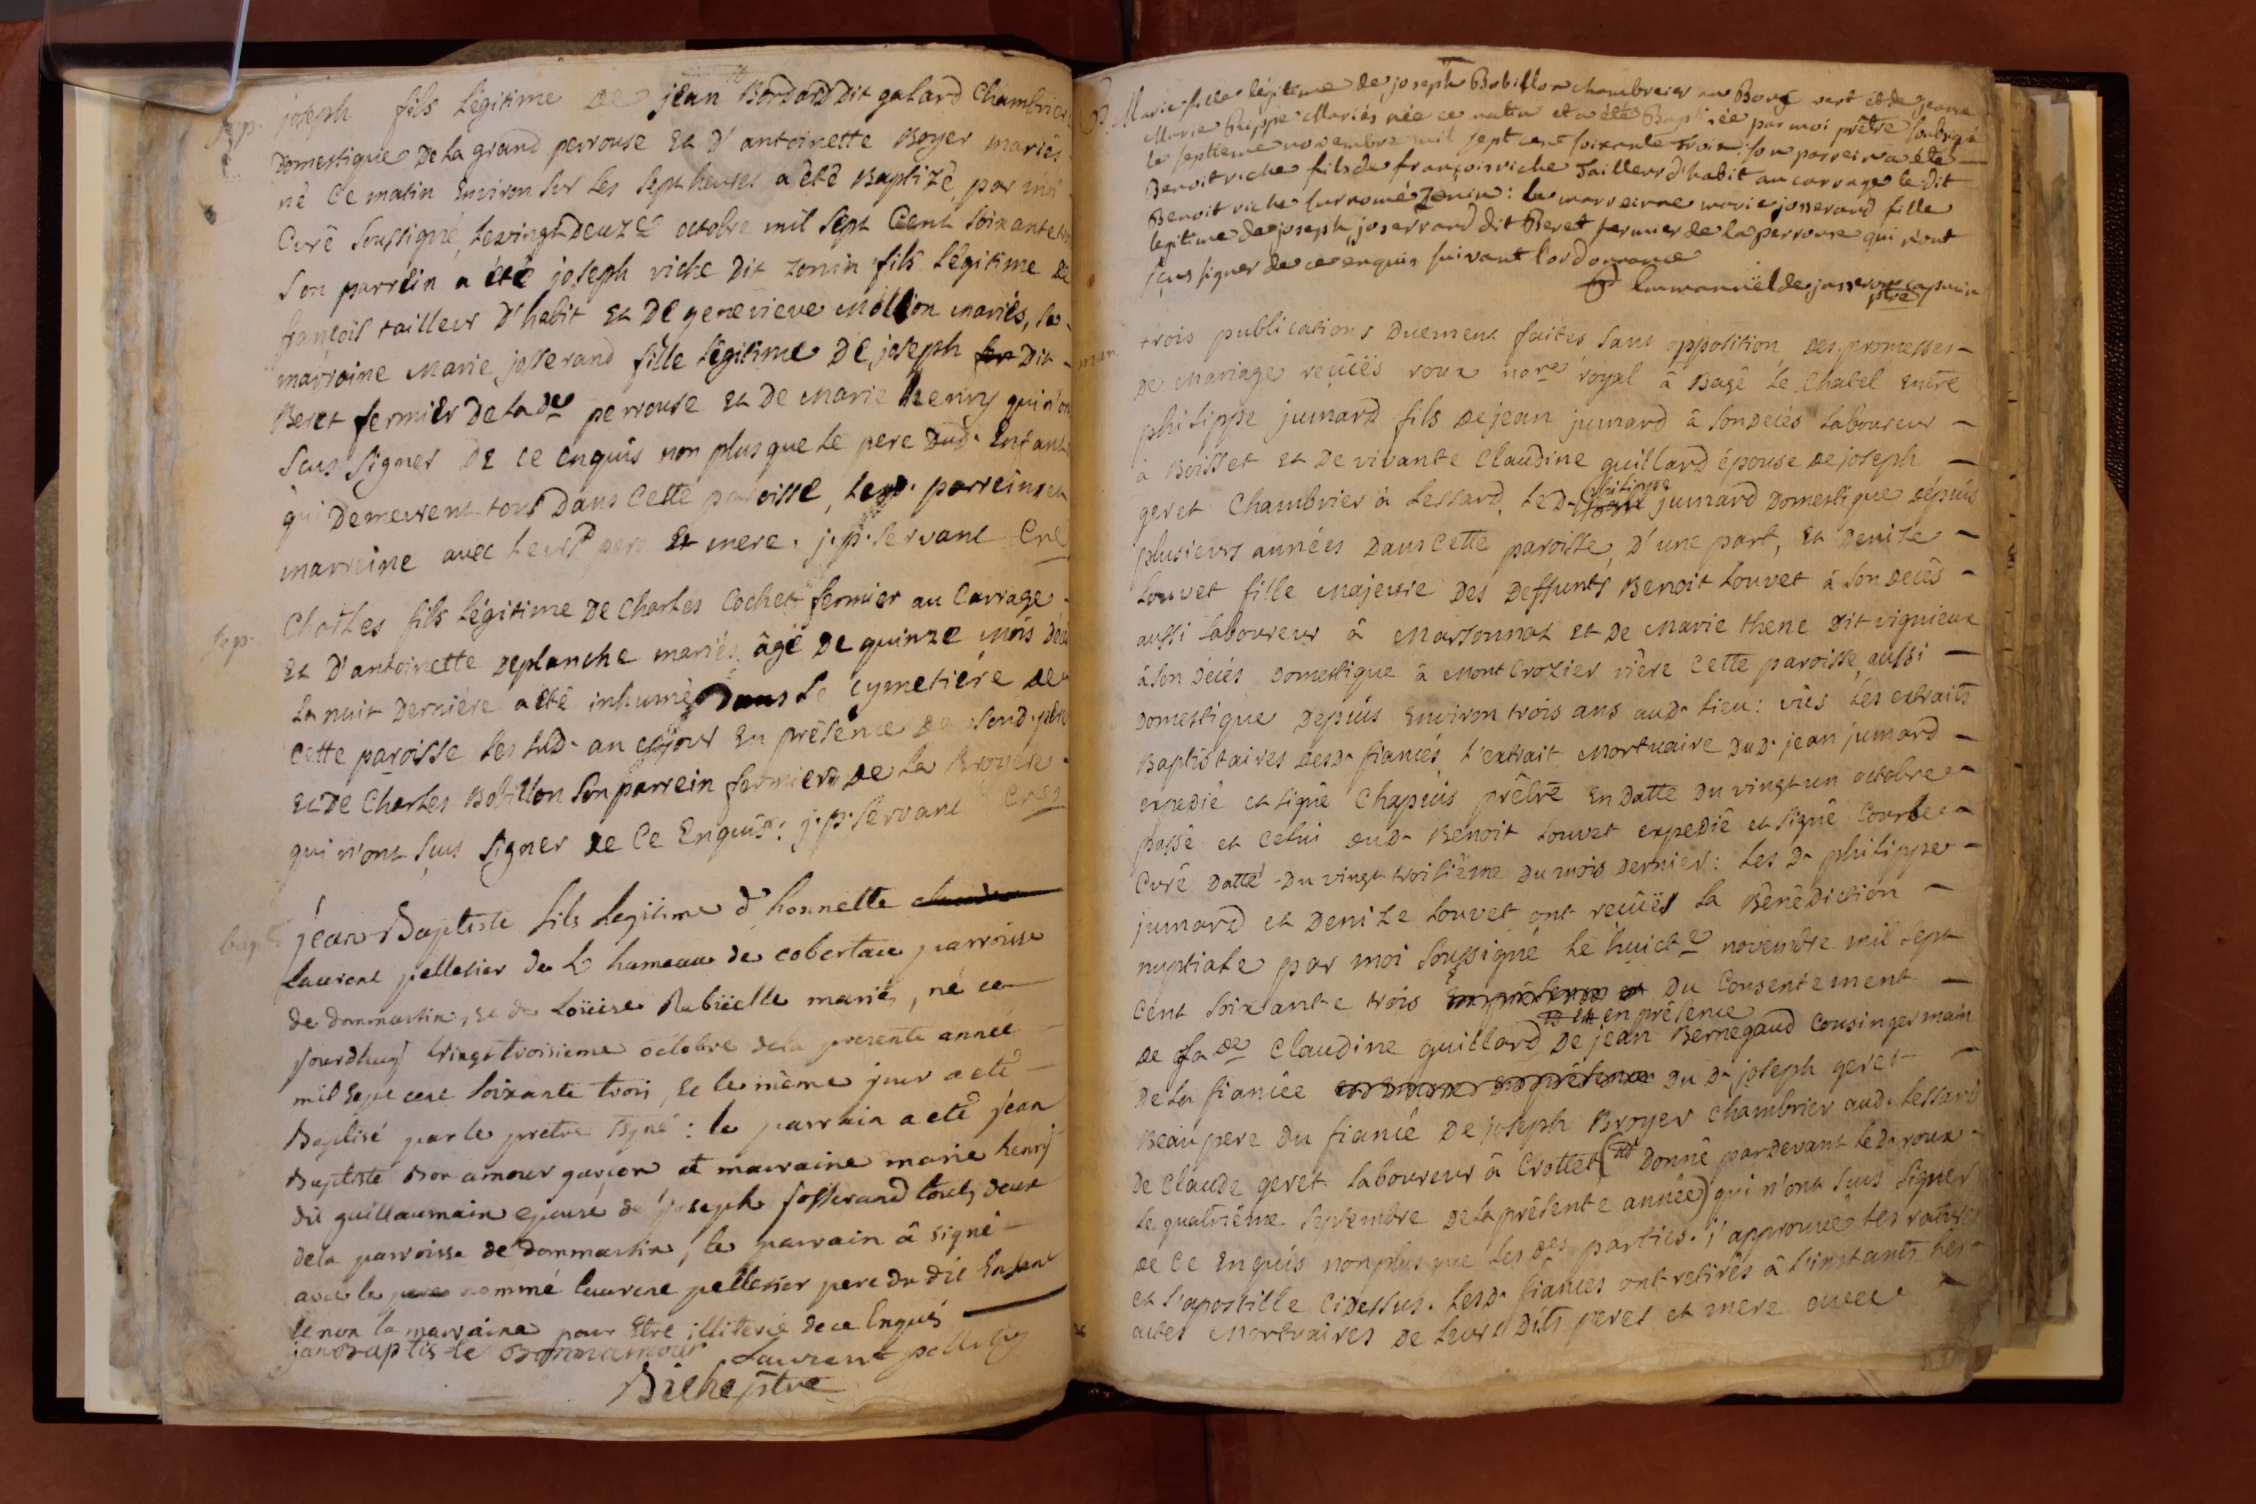 joseph fils Légitime De jean Bordard Dit galard Chambrier
Domestique De la grand perrouse Et D'antoinette Boyer mariés
né Ce matin Environ sur Les sept heures a été Baptizé par moi
Curé soussigné, Le vingt Deuze octobre mil sept Cent soixante
son parrein a été joseph viche Dit zonin fils Légitime De
françois tailleur D'habit Et De genevieve Mollion mariés, sa
marraine Marie josserand fille Légitime De joseph Dit
Beret fermier De lade perrouse Et De Marie henry qui n'on
sçus signer De ce enquis non plus que Le pere Dud. Enfant
qui Demeurent tous Dans Cette paroisse, parrein et
marreine avec Leurs pere Et mere. j.p. servant Cré
sep.
Charles fils Légitime De Charles Cochet fermier au Carrage
Et D'antoinette Deplanche mariés, âgé De quinze Mois
La nuit Derniére a été inhumé Dans Le Cymetiére De
Cette paroisse Les sud. an et jour En présence De sond. pere
Et De Charles Bobillon son parrein fermier De La Broyere
qui n'ont sçus signer De Ce Enquis: j.p. servant Cré
bap.
jean Baptiste fils Legitime d'honnette
Laurent pelletier de L hameau de cobertau parroisse
de dommartin, et de Loüise Rubüelle mariés, né ce
jourdhuy vingt troisieme octobre de la presente année
mil sept cent soixante trois, et le même jour a eté
Baptisé par le pretre ssgné: le parrain a eté jean
Baptiste Bon amour garçon et marraine marie henry
dit guillaumain epouse de joseph josserand touts deux
de la parroisse de dommartin, le parrain â signé
avec le nommé laurent pelletier pere du dit Enfant
et non la marraine pour Etre illiterée de ce Enquis
jan Baptiste Bonnamour Laurent pelletier
Biche ptre
B. Marie fille légitime de joseph Bobillon chambreier au Bourg vert et de jeanne
Marie Philippe Mariés née ce matin et a été Baptisée par moi prêtre soubsigné
le septieme novembre mil sept cent soixante trois: son parrein a été
Benoit viche fils de françois viche Tailleur d'habit au carrage le dit
Benoit viche surnomé Zonin: la marreinne marie josserand fille
legitime de joseph josserrand dit Beret fermier de la perrouse qui n'ont
sçus signer de ce enquis suivant l'ordonnance
fr. Emmanüel de jasseron capucin
ptre
mar.
trois publications Duement faites sans opposition, Des promesses
De Mariage reçüës roux nore royal â Bagé Le Chatel Entre
philippe jumard fils De jean jumard â son Decés Laboureur
à Boisset Et De vivante Claudine guillard épouse De joseph
geret Chambrier à Lessard, Le D. philippe jumard Domestique Depuis
plusieurs années Dans Cette paroisse, D'une part, Et Denize
Louvet fille Majeure Des Deffunts Benoit Louvet â son Decés
aussi Laboureur â Marsonnat Et De Marie thene Dit vignieux
à son Décés Domestique à Mont Crozier riére Cette paroisse, aussi
Domestique Depuis Environ trois ans aud. Lieu: vûs Les extraits
Baptistaires desd. fiancés, L'extrait Mortuaire Dud. jean jumard
expedié et signé Chapuis prêtre En Datte Du vingt un octobre
passé et celui Dud. Benoit Louvet expedié et signé Courbe
Curé Datté Du vingt troisiéme Du mois Dernier: Les D. philippe
jumard et Denize Louvet ont reçüës La Bénédiction
nuptiale par moi soussigné Le huicte novembre mil sept
Cent soixante trois Du Consentement
en présence
De La De Claudine guillard De jean Bernegaud Cousin germain
De La fiancée Du D. joseph geret
Beaupere Du fiancé De joseph Broyer Chambrier aud. Lessard
De Claude geret Laboureur â Crottet (Donné pardevant Le D. roux
Le quatriéme septembre De La présente année) qui n'ont sçus signer
De Ce Enquis nonplus que Les Des parties. j'approuve Les ratures
et L'apostille Cidessus. Lesd. fiances ont retirés â L'instant Les
actes Mortuaires De Leurs Dits peres et mere avec